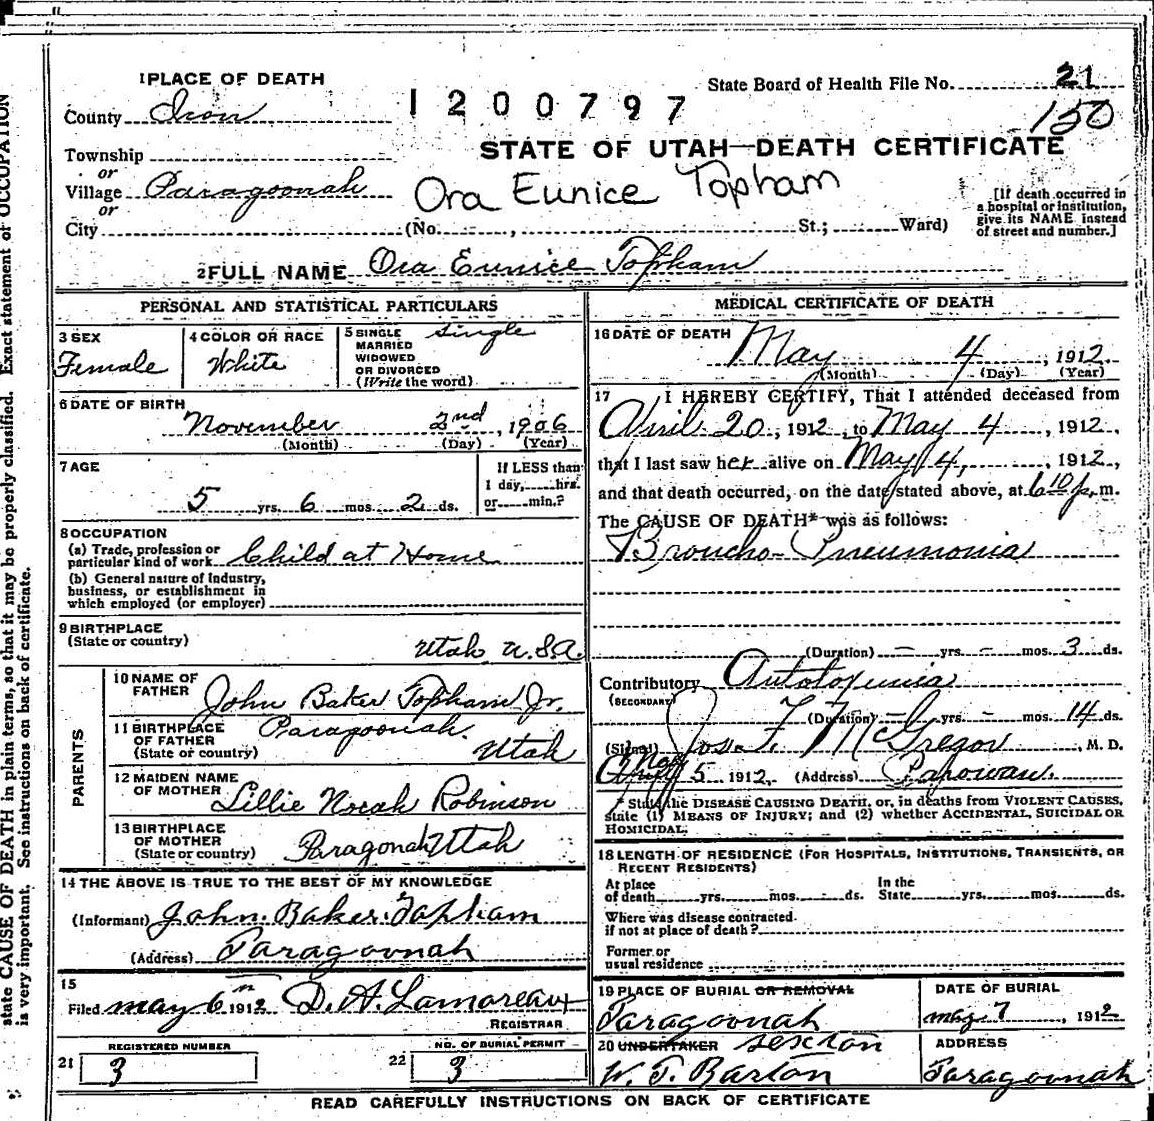 1 PLACE OF DEATH
State Board of Health File No. 21
County Iron
1200797
150
STATE OF UTAH—DEATH CERTIFICATE
Township
or
Village Paragoonah
Ora Eunice Topham
or
City (No. , St.; Ward)
[If death occurred in
a hospital or institution,
give its NAME instead
of street and number.]
2 FULL NAME Ora Eunice Topham
PERSONAL AND STATISTICAL PARTICULARS
3 SEX
Female
4 COLOR OR RACE
White
5 SINGLE
MARRIED
WIDOWED
OR DIVORCED
(Write the word)
Single
6 DATE OF BIRTH
November 2nd, 1906
(Month) (Day) (Year)
7 AGE
5 yrs. 6 mos. 2 ds.
If LESS than
1 day, hrs.
or min.?
8 OCCUPATION
(a) Trade, profession or
particular kind of work Child at Home
(b) General nature of Industry,
business, or establishment in
which employed (or employer)
9 BIRTHPLACE
(State or country)
Utah U.S.A.
PARENTS
10 NAME OF
FATHER
John Baker Topham Jr.
11 BIRTHPLACE
OF FATHER
(State or country)
Paragoonah.
Utah
12 MAIDEN NAME
OF MOTHER
Lillie Norah Robinson
13 BIRTHPLACE
OF MOTHER
(State or country)
Paragonah Utah
14 THE ABOVE IS TRUE TO THE BEST OF MY KNOWLEDGE
(Informant) John Baker Topham
(Address) Paragoonah
15
Filed May 6 1912 D. A. Lamoreaux
REGISTRAR
REGISTERED NUMBER
21 3
NO. OF BURIAL PERMIT
22 3
MEDICAL CERTIFICATE OF DEATH
16 DATE OF DEATH
May 4, 1912
(Month) (Day) (Year)
17 I HEREBY CERTIFY, That I attended deceased from
April 20, 1912, to May 4, 1912,
that I last saw her alive on May 4, 1912,
and that death occurred, on the date stated above, at 6 10 p.m.
The CAUSE OF DEATH* was as follows:
Broncho-Pneumonia
(Duration) – yrs. – mos. 3 ds.
Contributory
(SECONDARY)
(Duration) – yrs. – mos. 14 ds.
(Signed) Jos. F. McGregor, M. D.
May 5 1912 (Address) Parowan.
* State the DISEASE CAUSING DEATH, or, in deaths from VIOLENT CAUSES,
state (1) MEANS OF INJURY; and (2) whether ACCIDENTAL, SUICIDAL OR
HOMICIDAL.
18 LENGTH OF RESIDENCE (FOR HOSPITALS, INSTITUTIONS, TRANSIENTS, OR
RECENT RESIDENTS)
At place
of death yrs. mos. ds.
In the
State yrs. mos. ds.
Where was disease contracted
if not at place of death?
Former or
usual residence
19 PLACE OF BURIAL OR REMOVAL
Paragoonah
DATE OF BURIAL
May 7, 1912
20 UNDERTAKER Sexton
W. T. Barton
ADDRESS
Paragoonah
READ CAREFULLY INSTRUCTIONS ON BACK OF CERTIFICATE
state CAUSE OF DEATH in plain terms, so that it may be properly classified. Exact statement of OCCUPATION
is very important. See instructions on back of certificate.